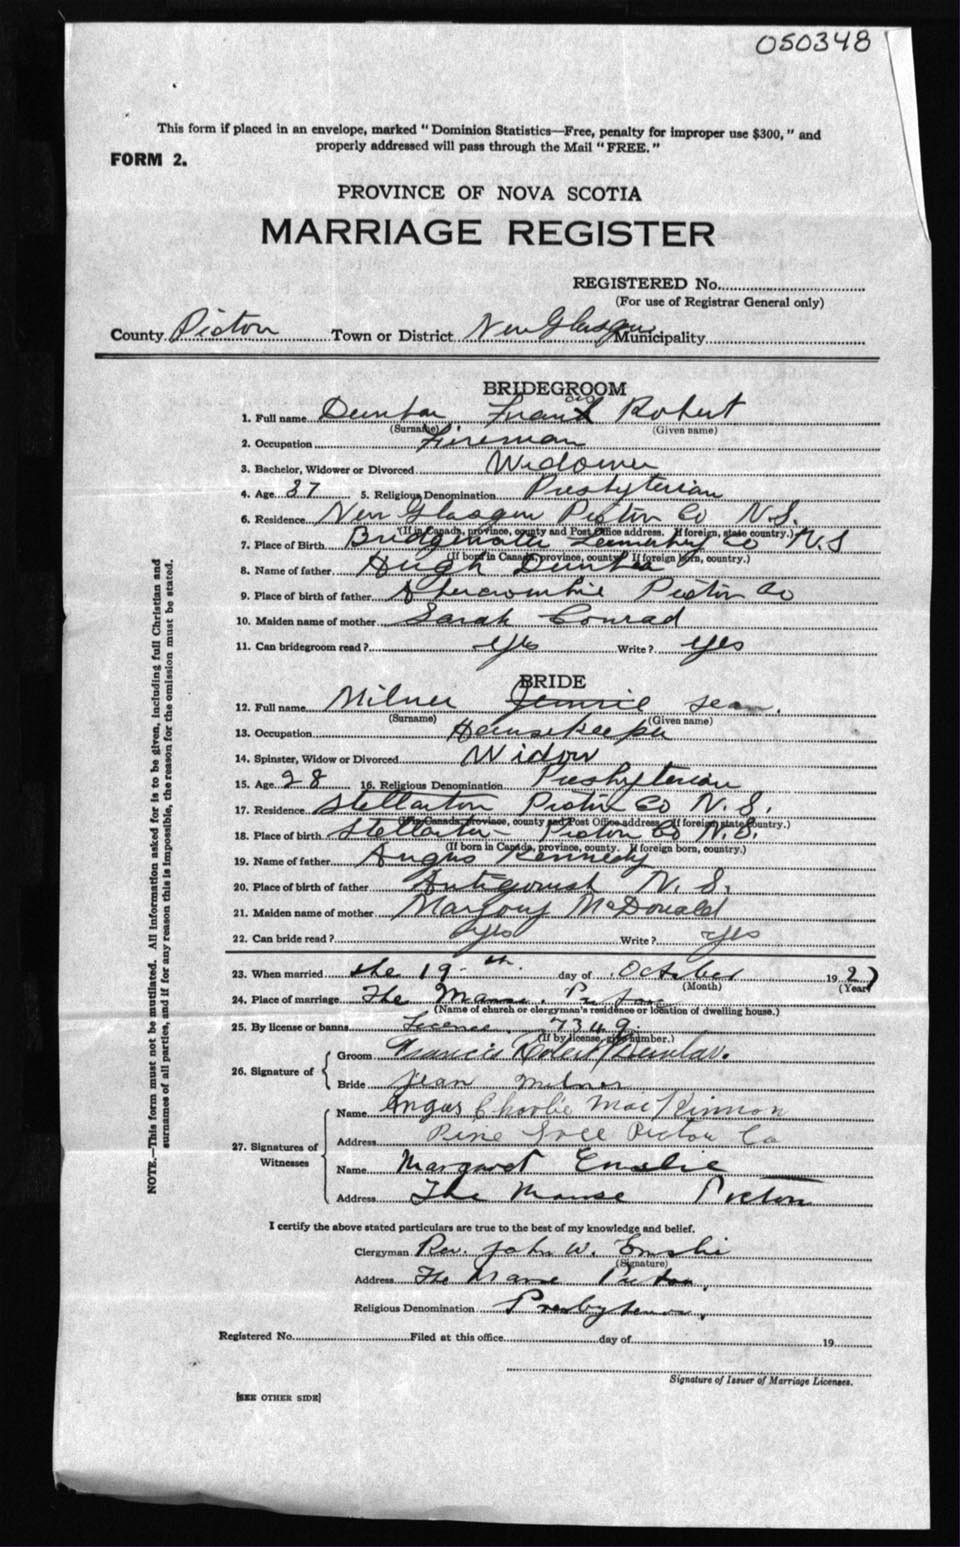 050348
This form if placed in an envelope, marked "Dominion Statistics—Free, penalty for improper use $300," and
properly addressed will pass through the Mail "FREE."
FORM 2.
PROVINCE OF NOVA SCOTIA
MARRIAGE REGISTER
REGISTERED No.
(For use of Registrar General only)
County Pictou Town or District New Glasgow Municipality
BRIDEGROOM
1. Full name Dunbar Francis Robert
(Surname) (Given name)
2. Occupation Fireman
3. Bachelor, Widower or Divorced Widower
4. Age 37 5. Religious Denomination Presbyterian
6. Residence New Glasgow Pictou Co N.S.
(If in Canada, province, county and Post Office address. If foreign, state country.)
7. Place of Birth Bridgewater Lunenburg Co N.S
(If born in Canada, province, county. If foreign born, country.)
8. Name of father Hugh Dunbar
9. Place of birth of father Abercrombie Pictou Co
10. Maiden name of mother Sarah Conrad
11. Can bridegroom read? yes Write? yes
BRIDE
12. Full name Milner Jennie Jean.
(Surname) (Given name)
13. Occupation Housekeeper
14. Spinster, Widow or Divorced Widow
15. Age 28 16. Religious Denomination Presbyterian
17. Residence Stellarton Pictou Co N.S.
(If in Canada, province, county and Post Office address. If foreign state country.)
18. Place of birth Stellarton Pictou Co N.S.
(If born in Canada, province, county. If foreign born, country.)
19. Name of father Angus Kennedy
20. Place of birth of father Antigonish N.S.
21. Maiden name of mother Marjory McDonald
22. Can bride read? yes Write? yes
23. When married the 19th. day of October 1927
(Month) (Year)
24. Place of marriage The Manse. Pictou
(Name of church or clergyman's residence or location of dwelling house.)
25. By license or banns License. 7349.
(If by license, give number.)
26. Signature of { Groom Francis Robert Dunbar.
Bride Jean Milner
27. Signatures of Witnesses { Name Angus Charlie MacKinnon
Address Pine Tree Pictou Co
Name Margaret Emslie
Address The Manse Pictou
I certify the above stated particulars are true to the best of my knowledge and belief.
Clergyman Rev. John W. Emslie
(Signature)
Address The Manse Pictou.
Religious Denomination Presbyterian.
Registered No. Filed at this office day of 19
Signature of Issuer of Marriage Licenses.
[SEE OTHER SIDE]
NOTE.—This form must not be mutilated. All information asked for is to be given, including full Christian and
surnames of all parties, and if for any reason this is impossible, the reason for the omission must be stated.